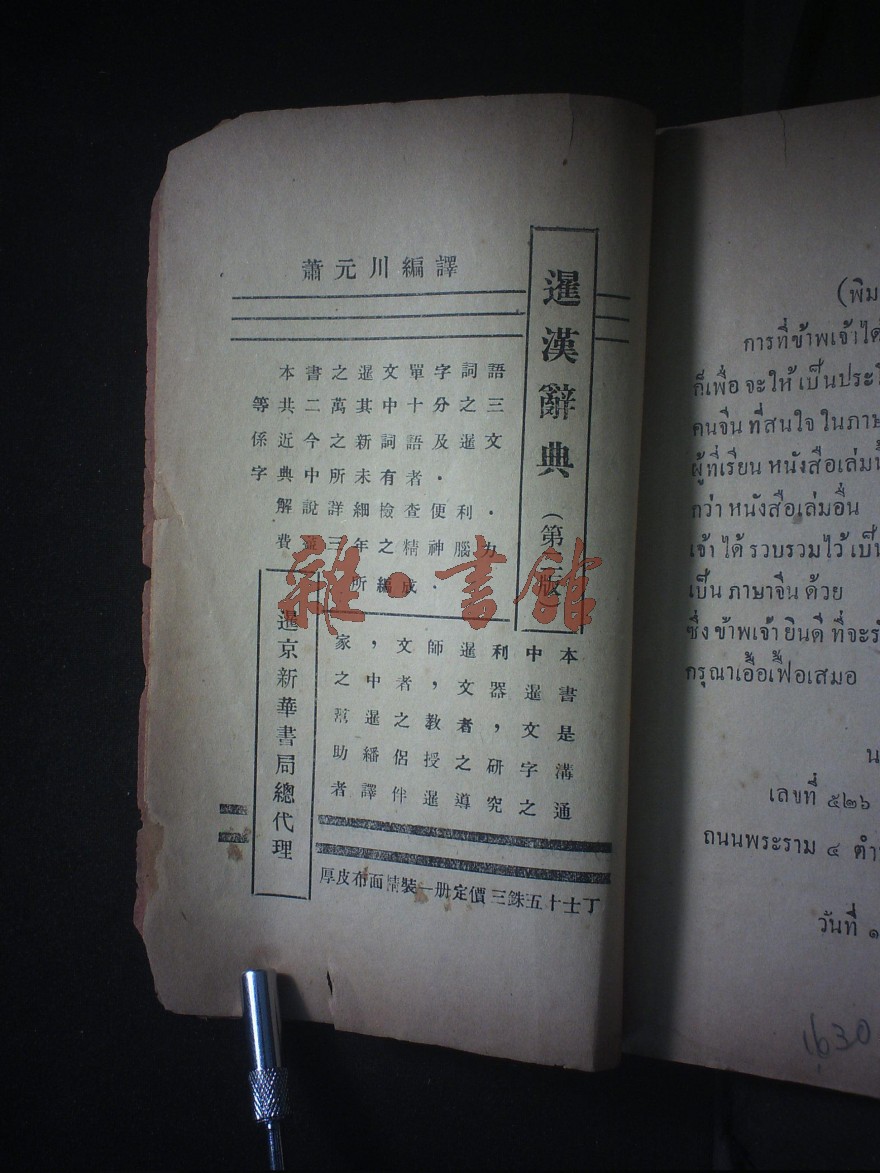 蕭元川編譯
暹漢辭典（第 版
本書之暹文單字詞語
等共二萬其中十分之三
係近今之新詞語及暹文
字典中所未有者．
解說詳細檢查便利．
費盡三年之精神腦力
所編成．
本書是溝通
中暹文字之
利器，研究
暹文者之導
師，教授暹
文者之侶伴
，中暹繙譯
家之幫助者
暹京新華書局總代理
厚皮布面精裝一册定價三銖五十士丁
雜·書館
(พิม
การที่ข้าพเจ้าได้
ก็เพื่อ จะให้ เป็นประโ
คนจีน ที่สนใจ ในภาษ
ผู้ที่เรียน หนังสือเล่มนี้
กว่า หนังสือเล่มอื่น
เจ้า ได้ รวบรวมไว้ เป็น
เป็น ภาษาจีน ด้วย
ซึ่ง ข้าพเจ้า ยินดี ที่จะรั
กรุณาเอื้อเฟื้อเสมอ
น
เลขที่ ๕๒๖
ถนนพระราม ๔ ตำ
วันที่ ๑
1630